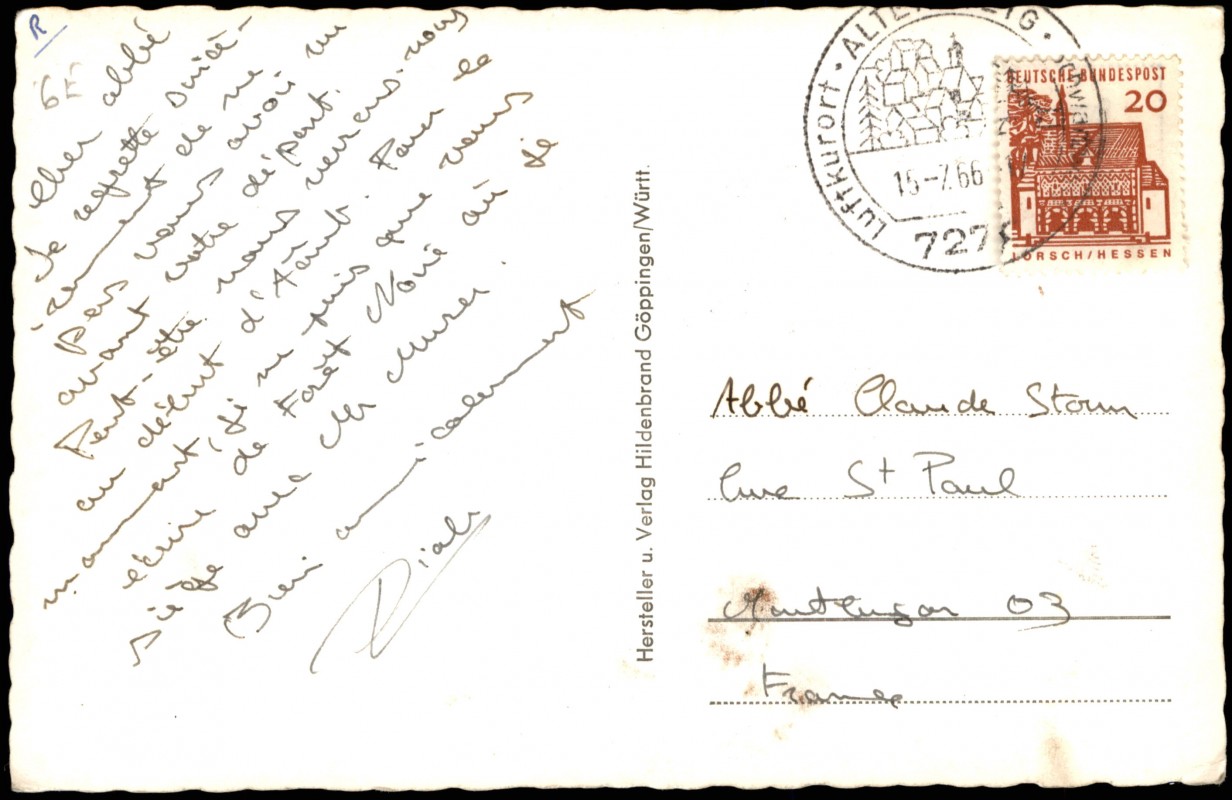 R
6E
Cher abbé
Je regrette sincè-
-rement de ne
pas vous avoir vu
avant votre départ.
Peut-être nous verrons-nous
au début d'Août. Pour le
moment, je ne puis que vous
écrire de Forêt Noire où je
siège avec Mr
Bien amicalement
Hersteller u. Verlag Hildenbrand Göppingen/Württ.
Luftkurort · ALTENSTEIG · Schwarzw
15.-7.66
7272
DEUTSCHE BUNDESPOST
20
LORSCH/HESSEN
Abbé Claude Storm
rue St Paul
Montluçon 03
France